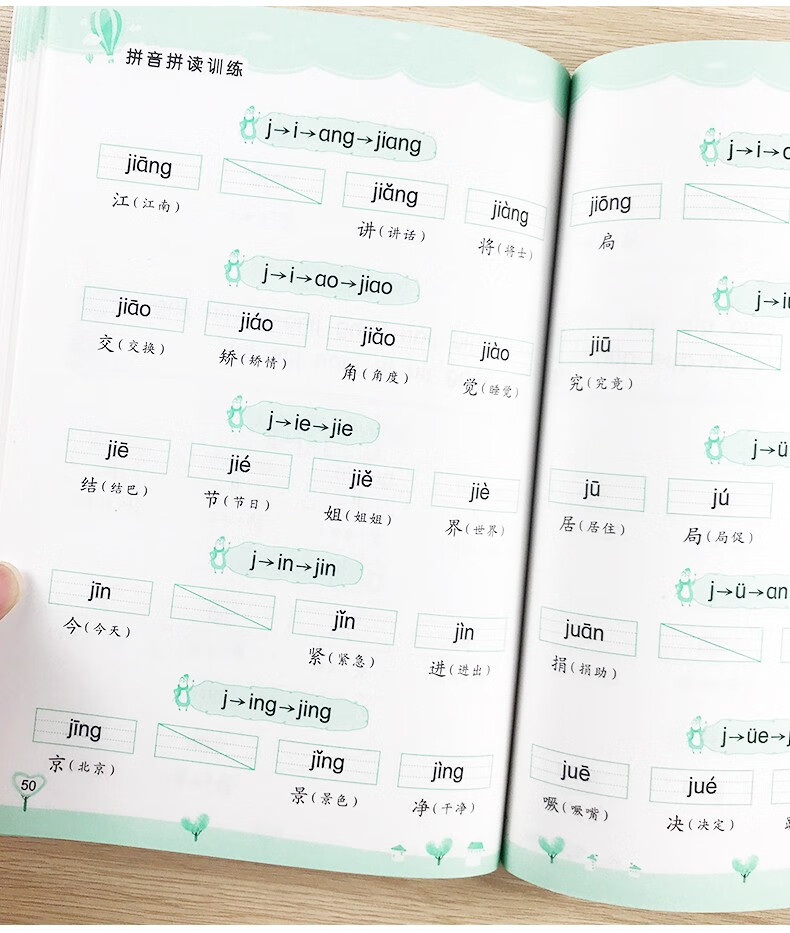 拼音拼读训练
j→i→ang→jiang
jiāng jiǎng jiàng
江(江南) 讲(讲话) 将(将士)
j→i→ao→jiao
jiāo jiáo jiǎo jiào
交(交换) 矫(矫情) 角(角度) 觉(睡觉)
j→ie→jie
jiē jié jiě jiè
结(结巴) 节(节日) 姐(姐姐) 界(世界)
j→in→jin
jīn jǐn jìn
今(今天) 紧(紧急) 进(进出)
j→ing→jing
jīng jǐng jìng
京(北京) 景(景色) 净(干净)
50
j→i→
jiōng
扃
j→i
jiū
究(究竟)
j→ü
jū jú
居(居住) 局(局促)
j→ü→an
juān
捐(捐助)
j→üe→
juē jué
噘(噘嘴) 决(决定)